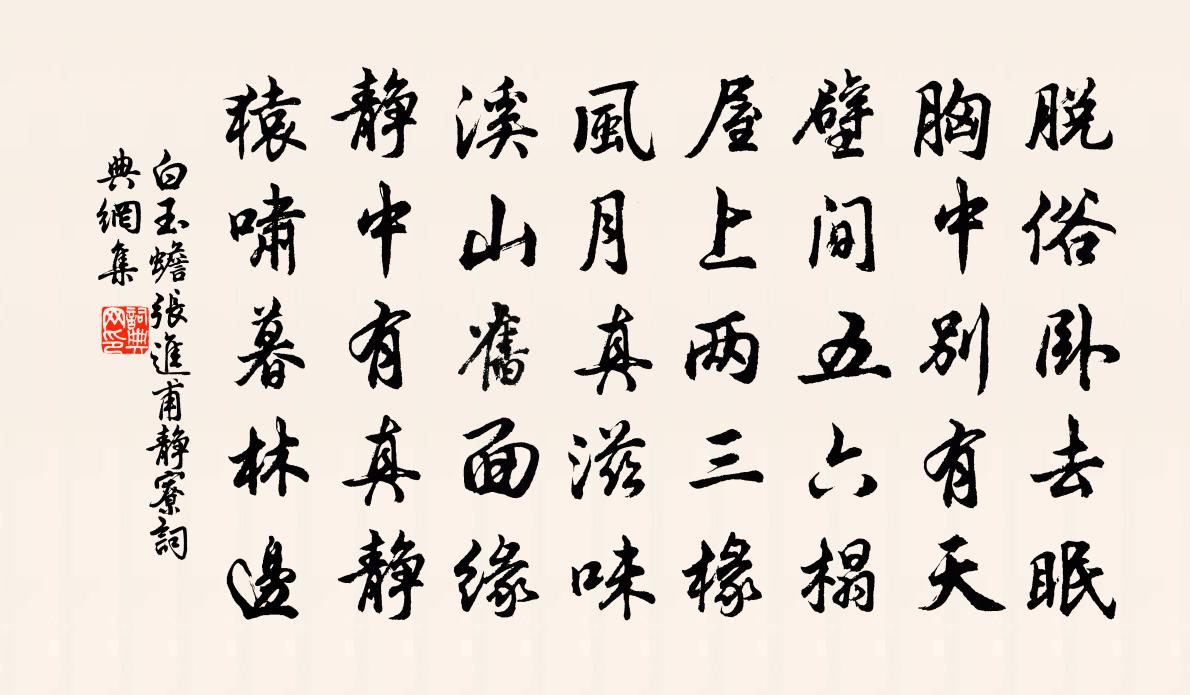 脱俗卧去眠
胸中别有天
壁间五六榻
屋上两三椽
風月真滋味
溪山舊面缘
静中有真静
猿啸暮林邊
白玉蟾張進甫静寮詞
典網集
詞典
网印